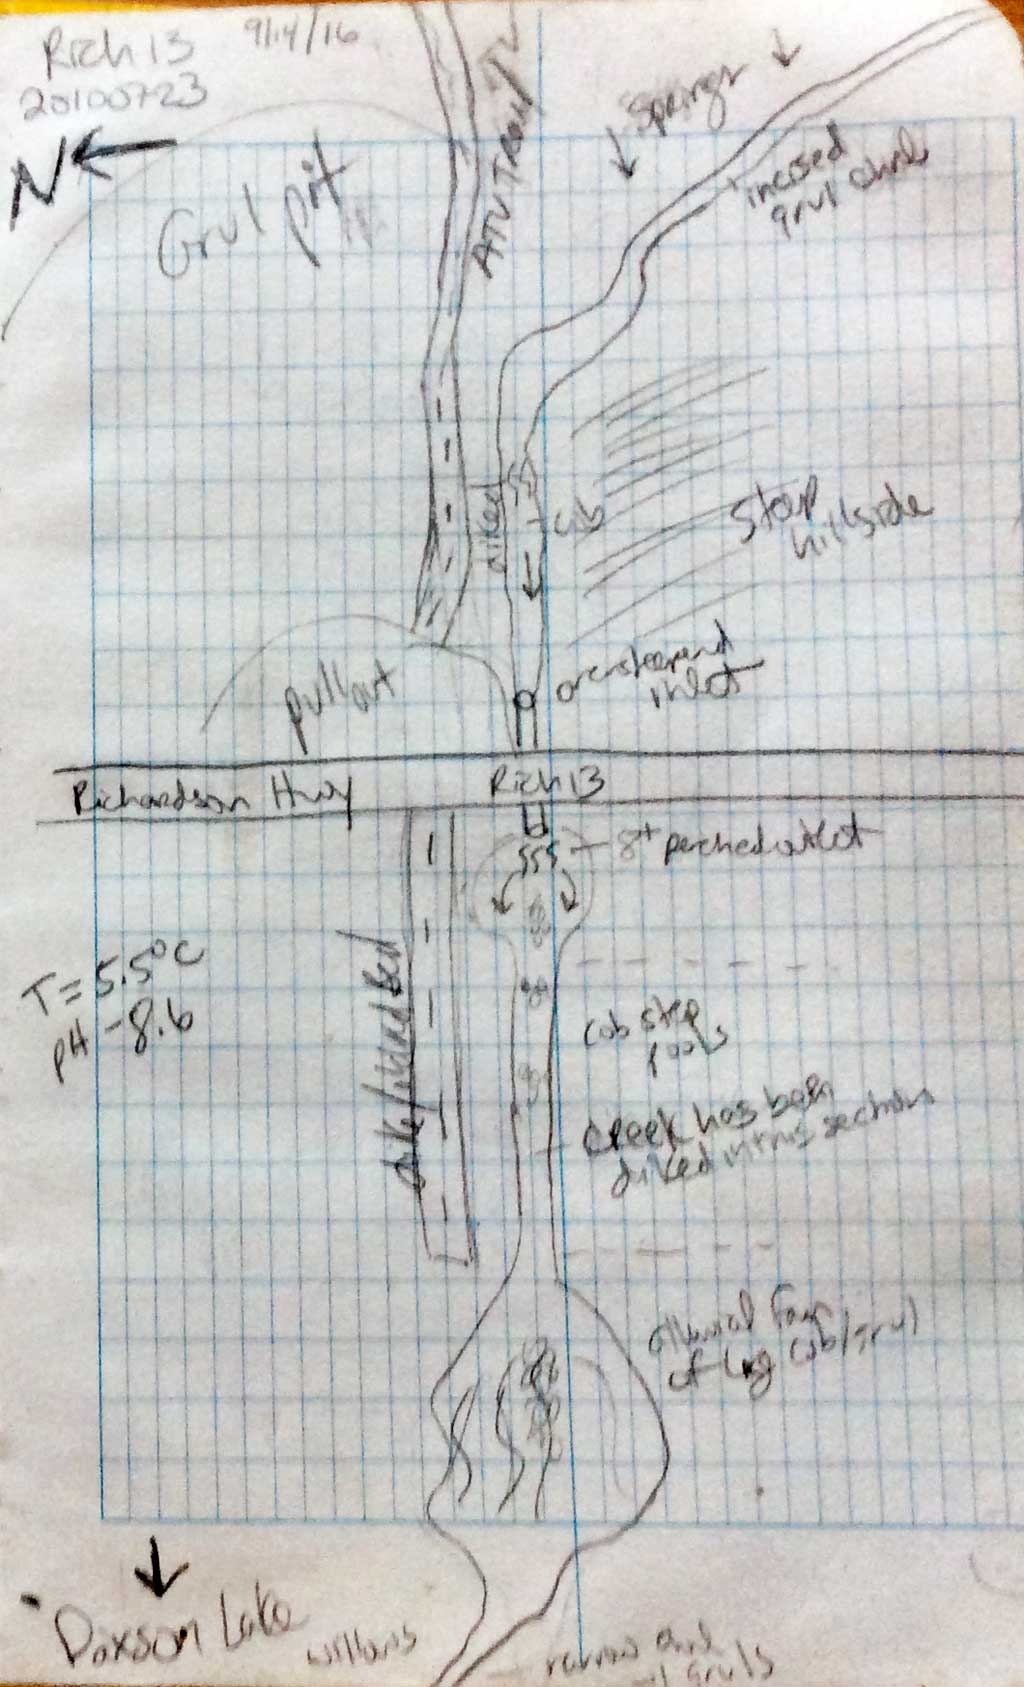 Rich 13 9/14/16
20100723
N
Grvl pit
ATV TRAIL
Springs
incised
grvl chnl
diked
cob
Steep
hillside
oversteepend
inlet
pullout
Richardson Hwy
Rich 13
8+ perched outlet
T= 5.5°C
pH -8.6
dike/
Bed
cob step
pools
Creek has been
diked in this section
alluvial fan
of lrg cob/grvl
Paxson Lake
willows
narrow chnl
gruls